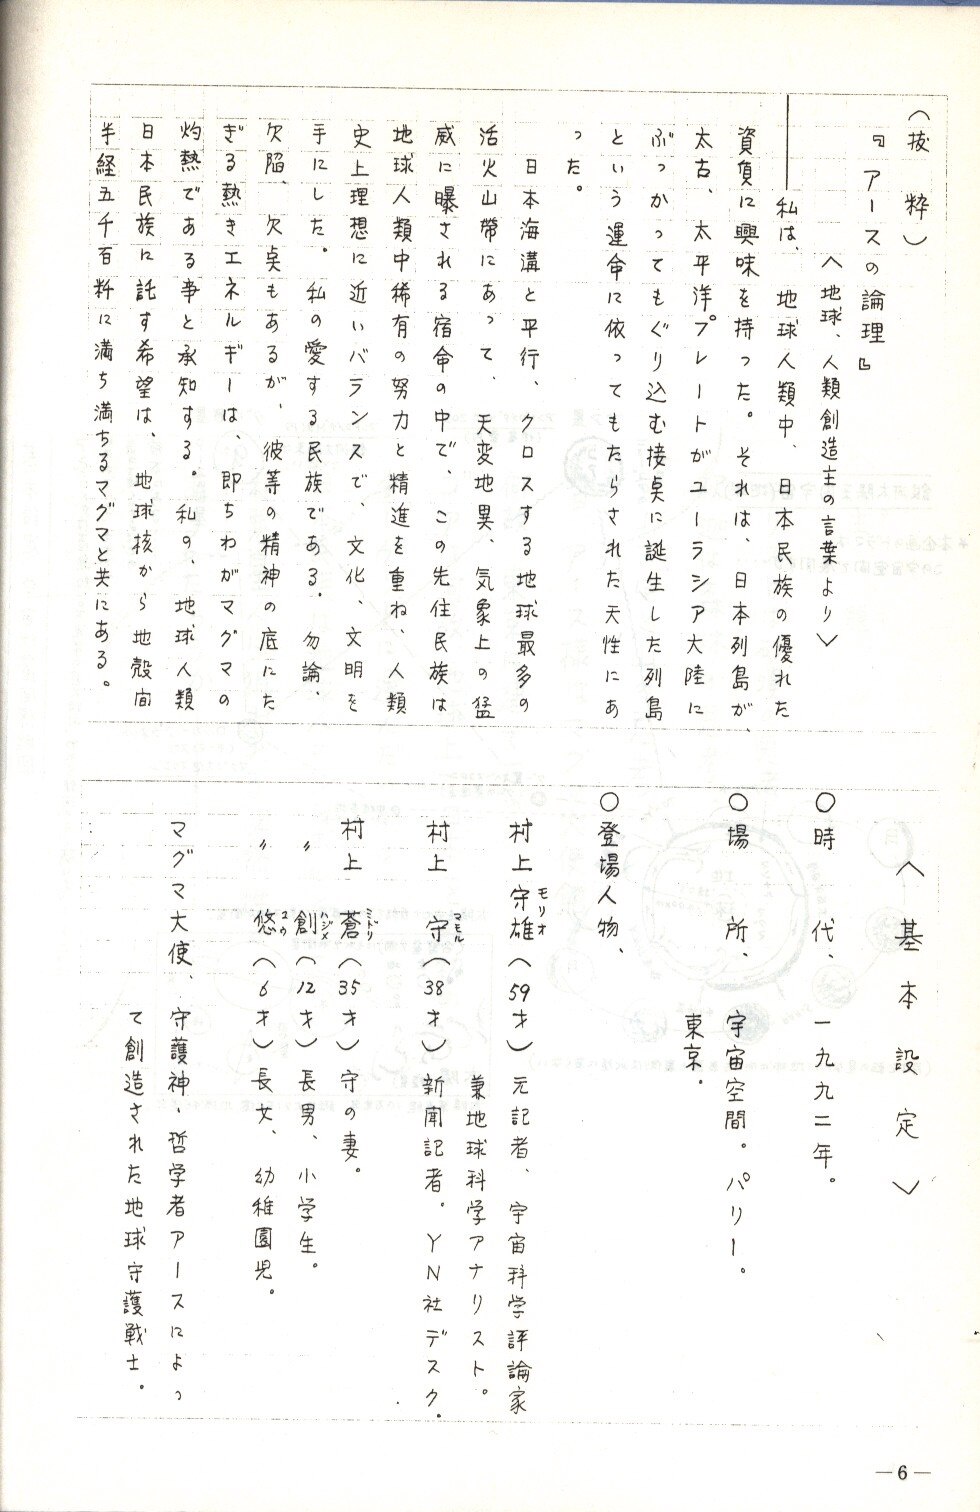 （抜粋）
『アースの論理』
＜地球、人類創造主の言葉より＞
私は、地球人類中、日本民族の優れた
資質に興味を持った。それは、日本列島が、
太古、太平洋プレートがユーラシア大陸に
ぶっかってもぐり込む接点に誕生した列島
という運命に依ってもたらされた天性にあ
った。
日本海溝と平行、クロスする地球最多の
活火山帯にあって、天変地異、気象上の猛
威に曝される宿命の中で、この先住民族は
地球人類中稀有の努力と精進を重ね、人類
史上理想に近いバランスで、文化、文明を
手にした。私の愛する民族である。勿論、
欠陥、欠点もあるが、彼等の精神の底にた
ぎる熱きエネルギーは、即ちわがマグマの
灼熱である事と承知する。私の、地球人類
日本民族に託す希望は、地球核から地殻間
半経五千百粁に満ち満ちるマグマと共にある。
＜基本設定＞
○時代、一九九二年。
○場所、宇宙空間。パリー。
東京。
○登場人物、
村上守雄（59才）元記者、宇宙科学評論家
モリオ
兼地球科学アナリスト。
村上守（38才）新聞記者。YN社デスク。
マモル
村上蒼（35才）守の妻。
ミドリ
〃創（12才）長男、小学生。
ハジメ
〃悠（6才）長女、幼稚園児。
マグマ大使、守護神・哲学者アースによっ
て創造された地球守護戦士。
—6—